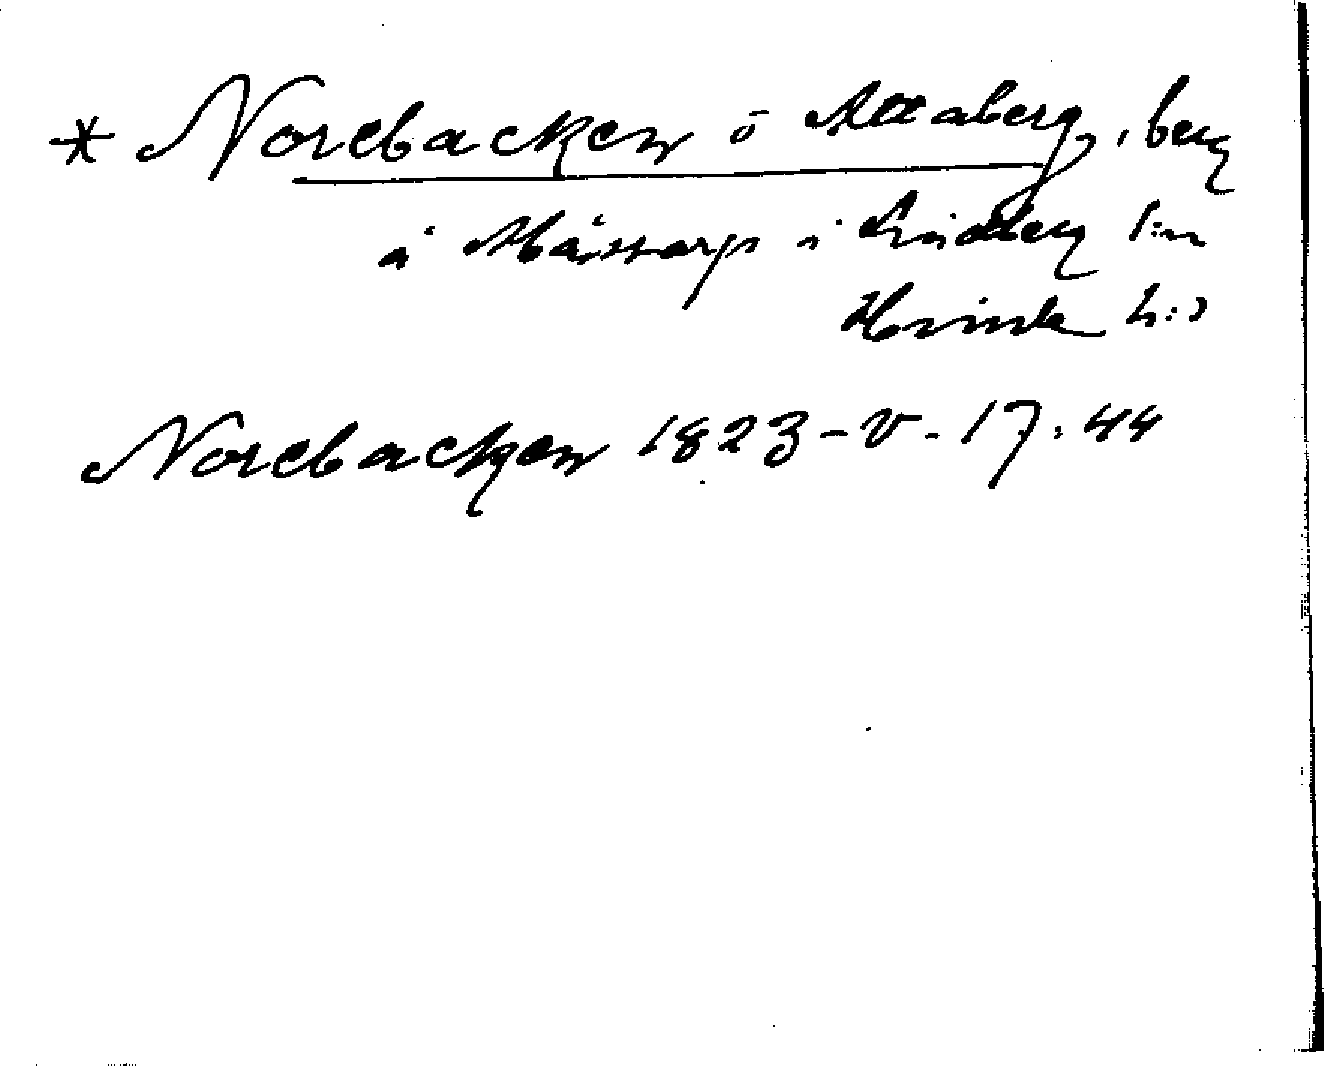 * Norebacken å Attaberg, berg
å Mässarp i Lindberg sn
Himle h:d
Norebacken 1823-V-17. 44